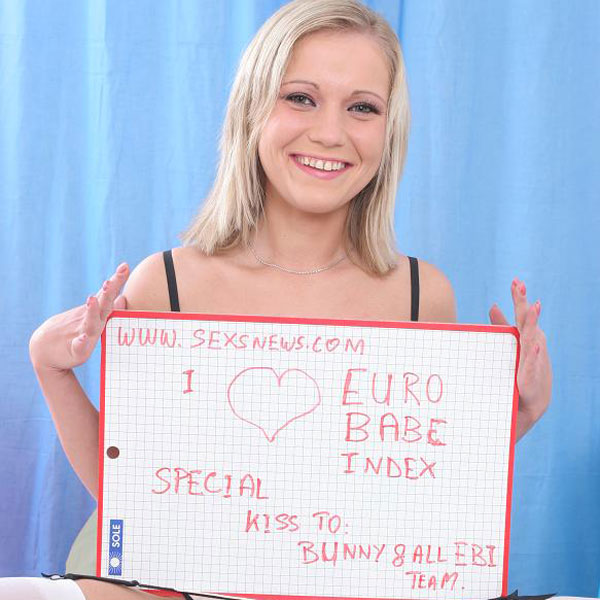 WWW.SEXSNEWS.COM
I ♡ EURO
BABE
INDEX
SPECIAL
KISS TO:
BUNNY & ALL EBI
TEAM.
SOLE